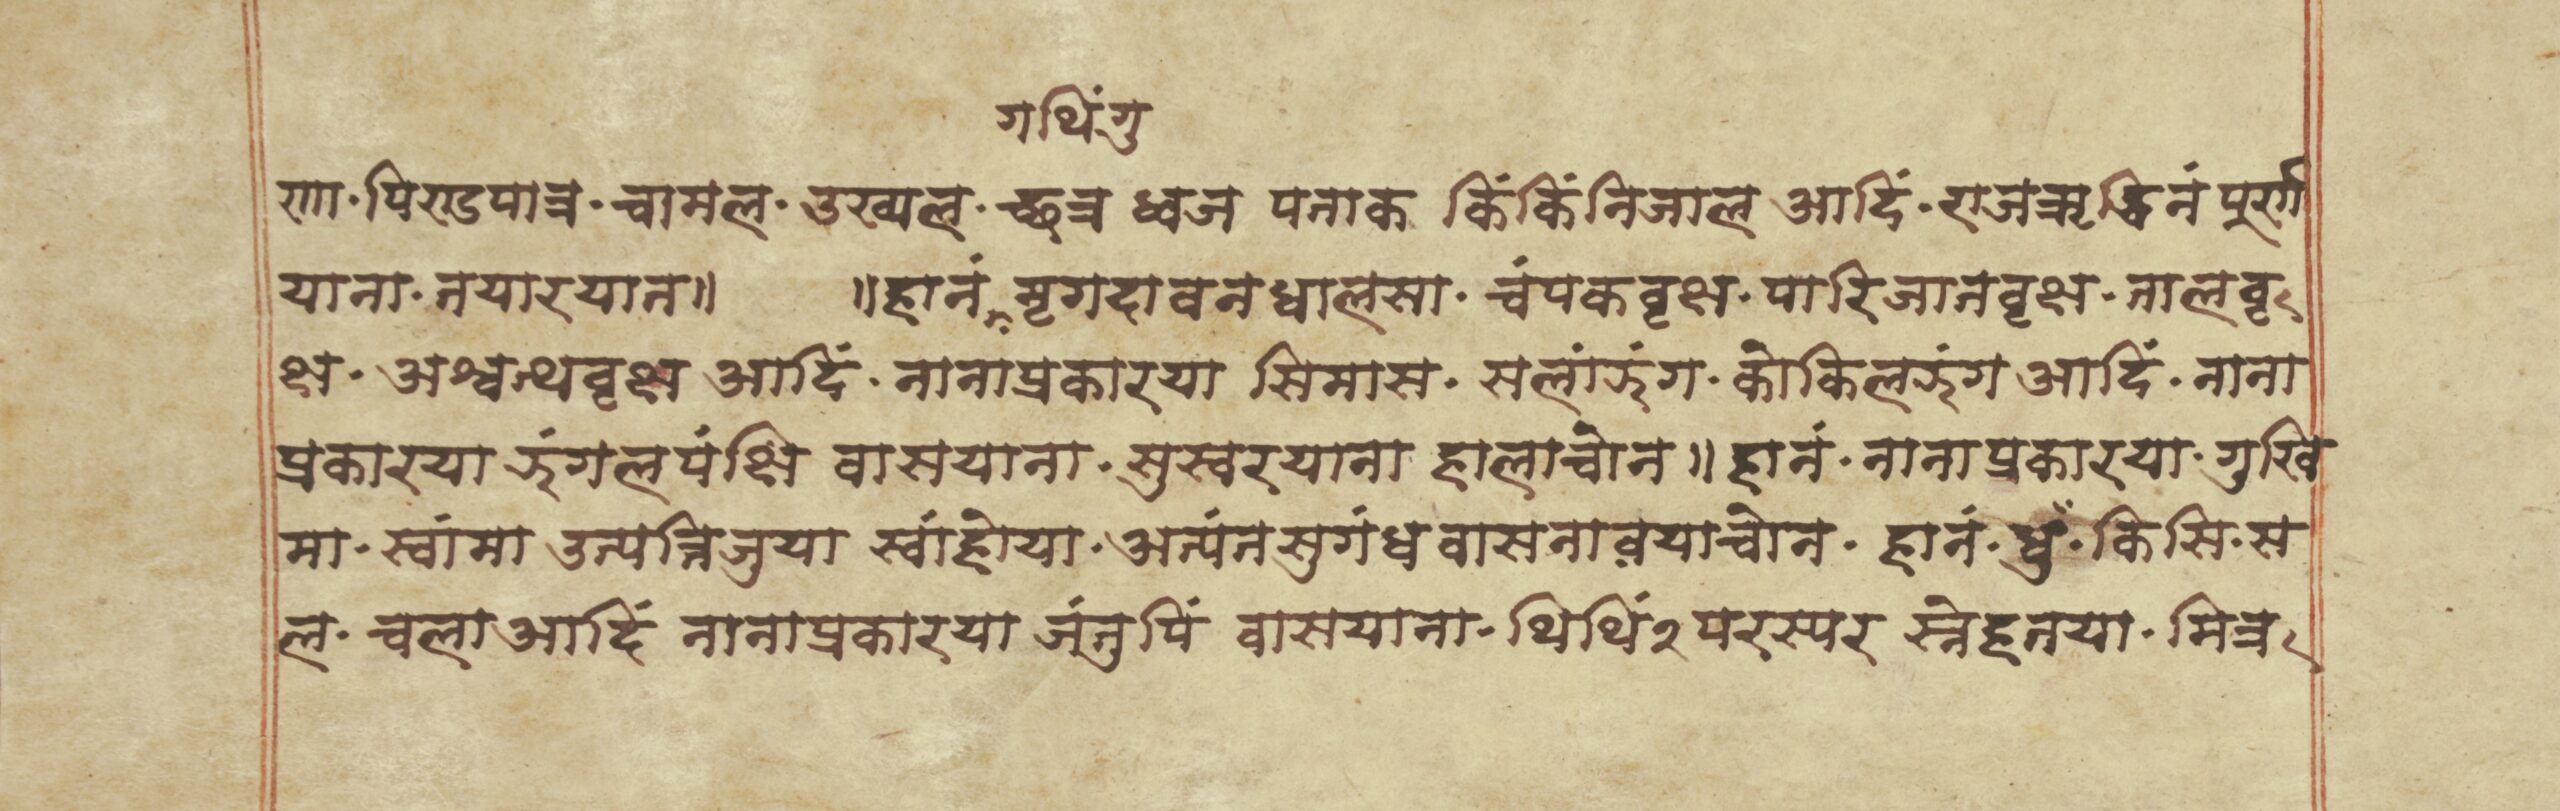 गथिंगु
रणा·पिण्डपात्र·चामल·उख्यल·च्छत्र ध्वज पताक किंकिंनिजाल आदिं·राजऋद्धिनं पूर्ण
याना·तयारयात॥ ॥हानं मृगदावनध्वालसा·चंपकवृक्ष·पारिजातवृक्ष·तालवृ
क्ष·अश्वत्थवृक्ष आदिं·नानाप्रकारया सिमास·सलांझंग·कोकिलझंग आदिं·नाना
प्रकारया झंगलपंक्षि वासयाना·सुस्वरयाना हालाचोन॥हानं·नानाप्रकारया·गुखि
मा·स्वांमा उत्पत्तिजुया स्वांहोया·अत्यंतसुगंधवासनावयाचोन·हानं·धुँ·किसि·स
ल·चलाआदिं नानाप्रकारया जंतुपिं वासयाना·थिथिं२परस्पर स्नेहतया·मित्र